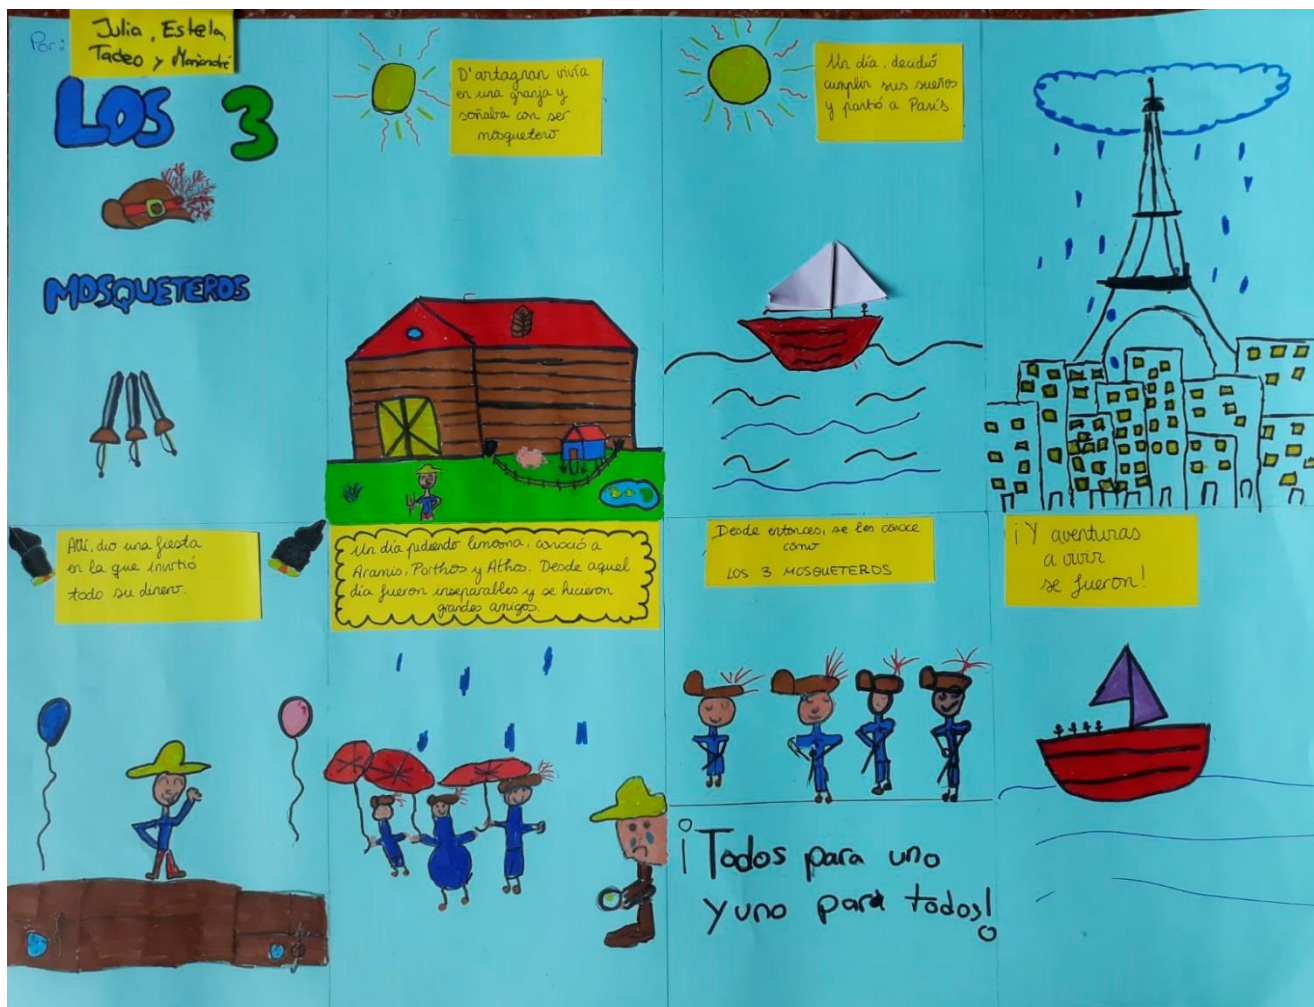 Por:
Julia, Estela,
Tadeo y Mariandré
LOS 3
MOSQUETEROS
D'artagnan vivía
en una granja y
soñaba con ser
mosquetero
Un día, decidió
cumplir sus sueños
y partió a París
Allí, dio una fiesta
en la que invirtió
todo su dinero.
Un día pidiendo limosna, conoció a
Aramis, Porthos y Athos. Desde aquel
día fueron inseparables y se hicieron
grandes amigos.
Desde entonces, se les conoce
como
LOS 3 MOSQUETEROS
¡Todos para uno
y uno para todos!
¡Y aventuras
a vivir
se fueron!